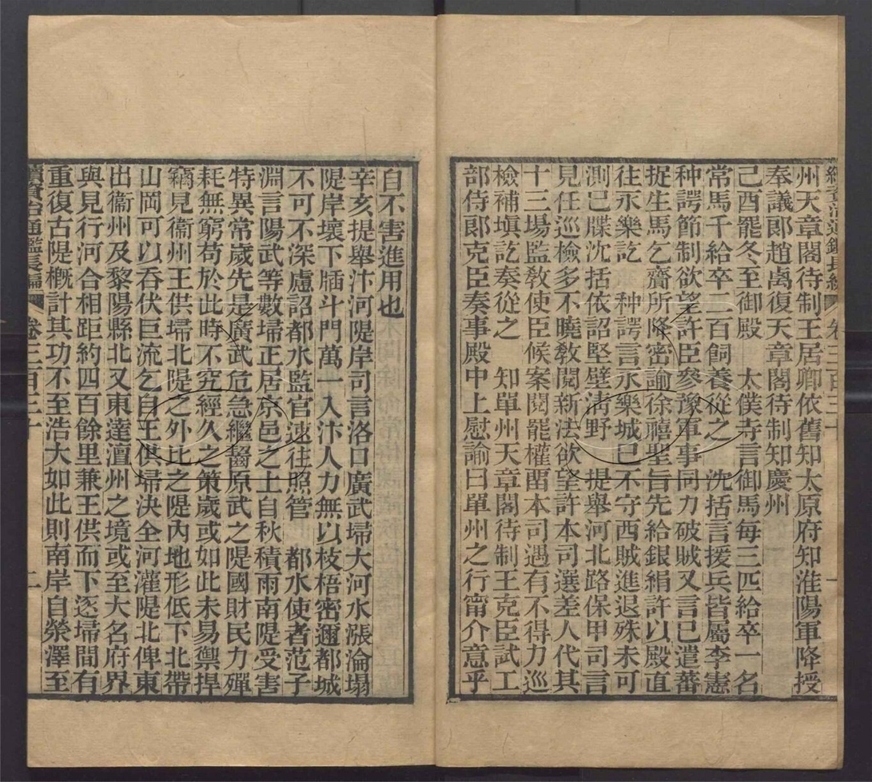 州天章閣待制王居卿依舊知太原府知淮陽軍降授
奉議郞趙卨復天章閣待制知慶州
己酉罷冬至御殿　太僕寺言御馬每三匹給卒一名
常馬千給卒二百飼養從之　沈括言援兵皆屬李憲
种諤節制欲望許臣參豫軍事同力破賊又言已遣蕃
捉生馬乞齎所降密諭徐禧聖旨先給銀絹許以殿直
往永樂訖　种諤言永樂城已不守西賊進退殊未可
測已牒沈括依詔堅壁淸野　提舉河北路保甲司言
見任巡檢多不曉敎閱新法欲望許本司選差人代其
十三場監敎使臣候案閱罷權酉本司遇有不得力巡
檢補塡訖奏從之　知單州天章閣待制王克臣試工
部侍郞克臣奏事殿中上慰諭曰單州之行甯介意乎
自不害進用也
辛亥提舉汴河隄岸司言洛口廣武埽大河水漲淪塌
隄岸壞下牐斗門萬一入汴人力無以枝梧密邇都城
不可不深慮詔都水監官速往照管　都水使者范子
淵言陽武等數埽正居京邑之上自秋積雨南隄受害
特異常歲先是廣武危急繼醫原武之隄國財民力殫
耗無窮苟於此時不究經久之策歲或如此未易禦捍
竊見衞州王供埽北隄之外比之隄內地形低下北帶
山岡可以吞伏巨流乞自王供埽決全河灌隄北俾東
出衞州及黎陽縣北又東達澶州之境或至大名府界
與見行河合相距約四百餘里兼王供而下逐埽間有
重復古隄槪計其功不至浩大如此則南岸自滎澤至
續資治通鑑長編　卷三百三十　二